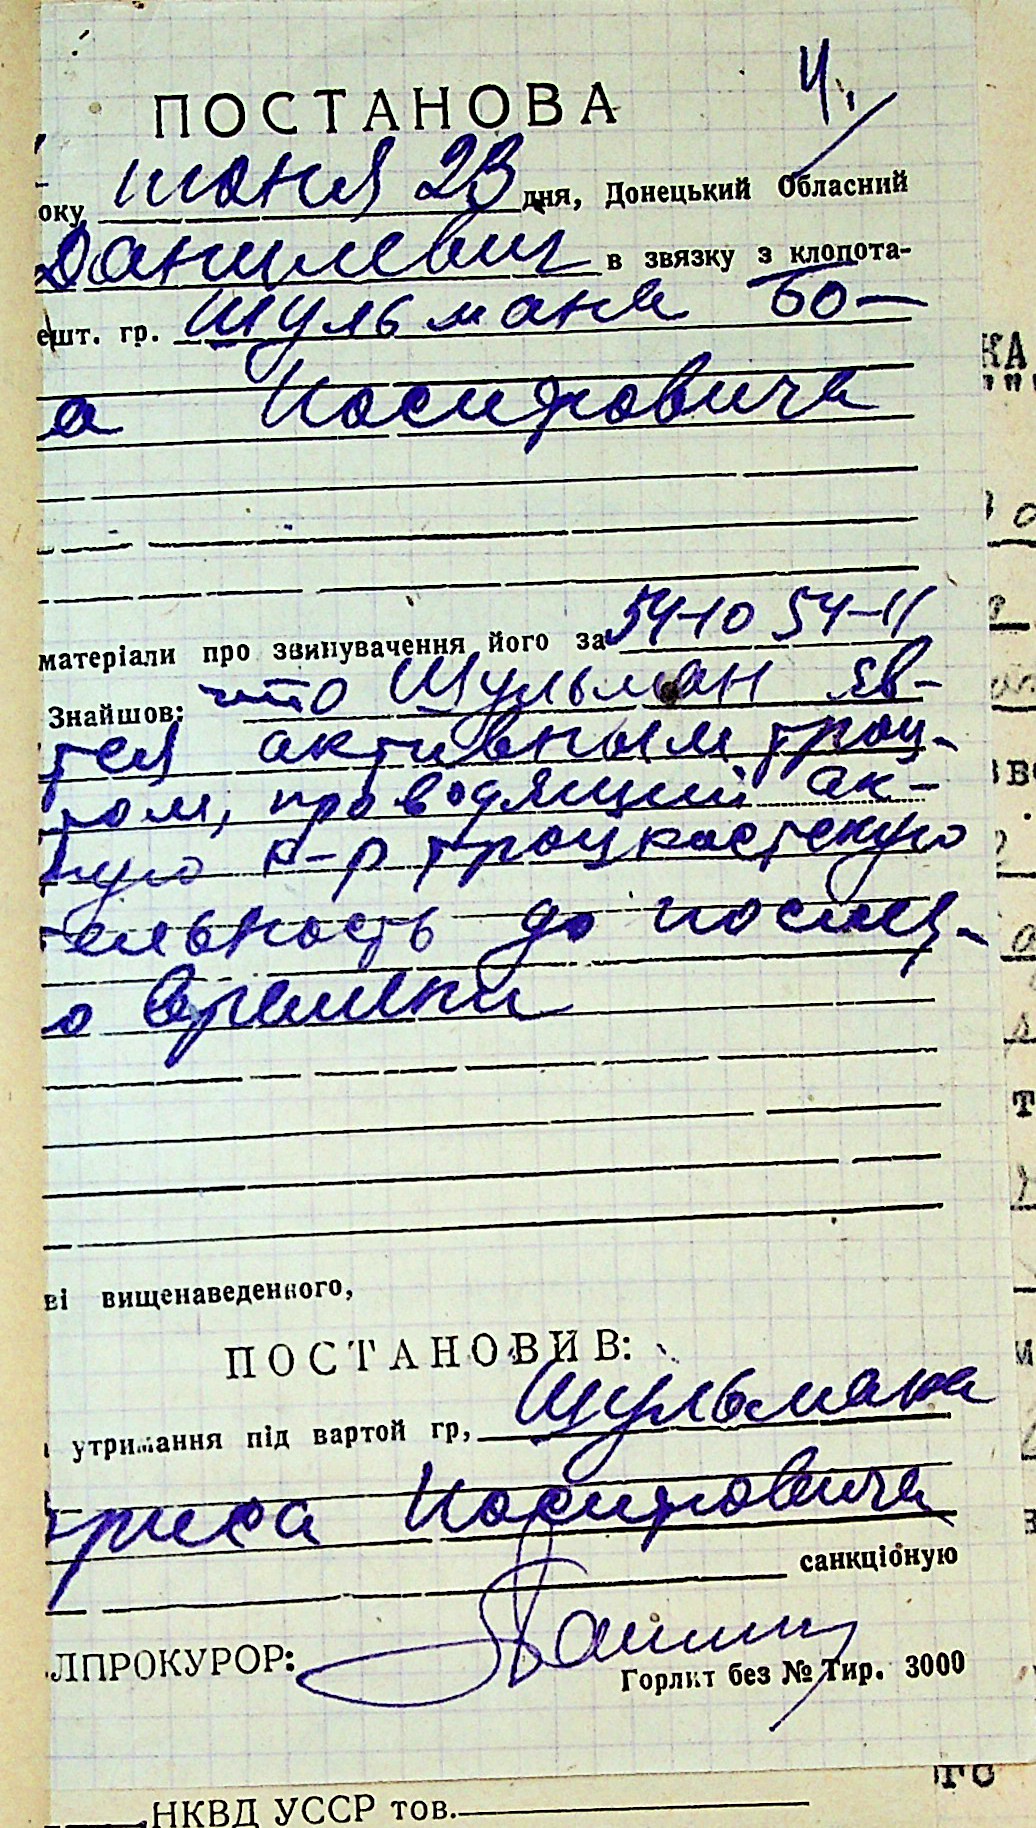 4.
ПОСТАНОВА
оку июня 23 дня, Донецький Обласний
Данилевич в звязку з клопота-
ешт. гр. Шульмана Бо-
а Иосиповича
матеріали про звинувачення його за 54-10 54-11
Знайшов: что Шульман яв-
тся активным троц-
том, проводящий ак-
ную к-р троцкастскую
тельность до послед-
о времени
ві вищенаведенного,
ПОСТАНОВИВ:
утримання під вартой гр, Шульмана
риса Иосиповича
санкціоную
ЛПРОКУРОР:
Горліт без № Тир. 3000
НКВД УССР тов.